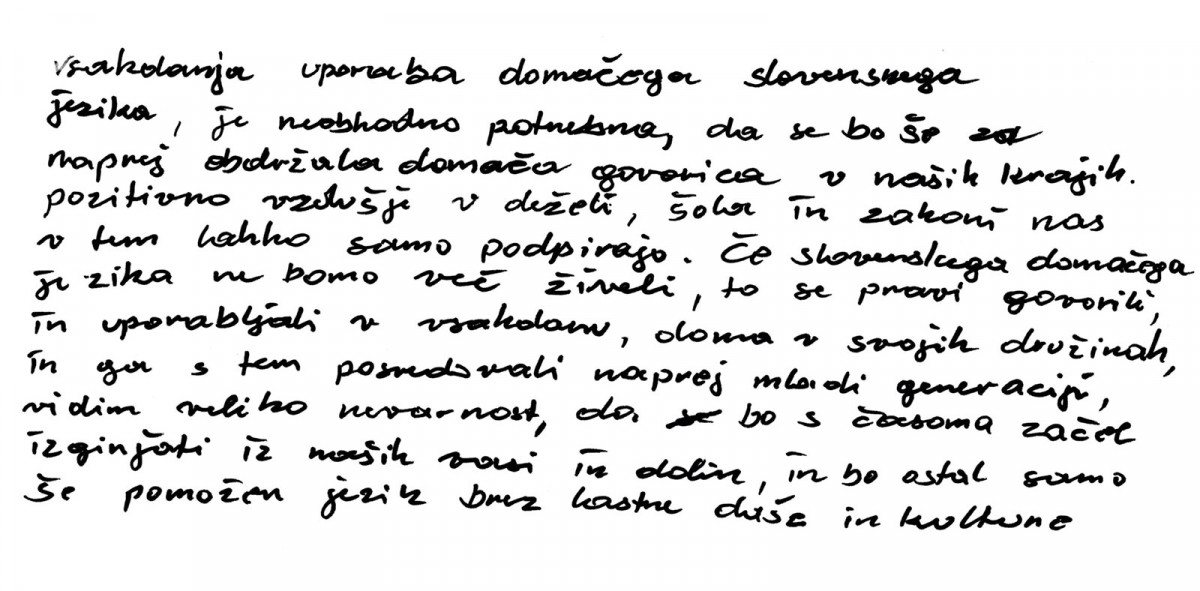 vsakdanja uporaba domačega slovenskega
jezika, je neobhodno potrebna, da se bo še
naprej obdržala domača govorica v naših krajih.
pozitivno vzdušje v deželi, šola in zakoni nas
v tem lahko samo podpirajo. Če slovenskega domačega
jezika ne bomo več živeli, to se pravi govorili,
in uporabljali v vsakdanu, doma v svojih družinah,
in ga s tem posredovali naprej mladi generaciji,
vidim veliko nevarnost, da bo s časoma začel
izginjati iz naših vasi in dolin, in bo ostal samo
še pomožen jezik brez lastne duše in kulture